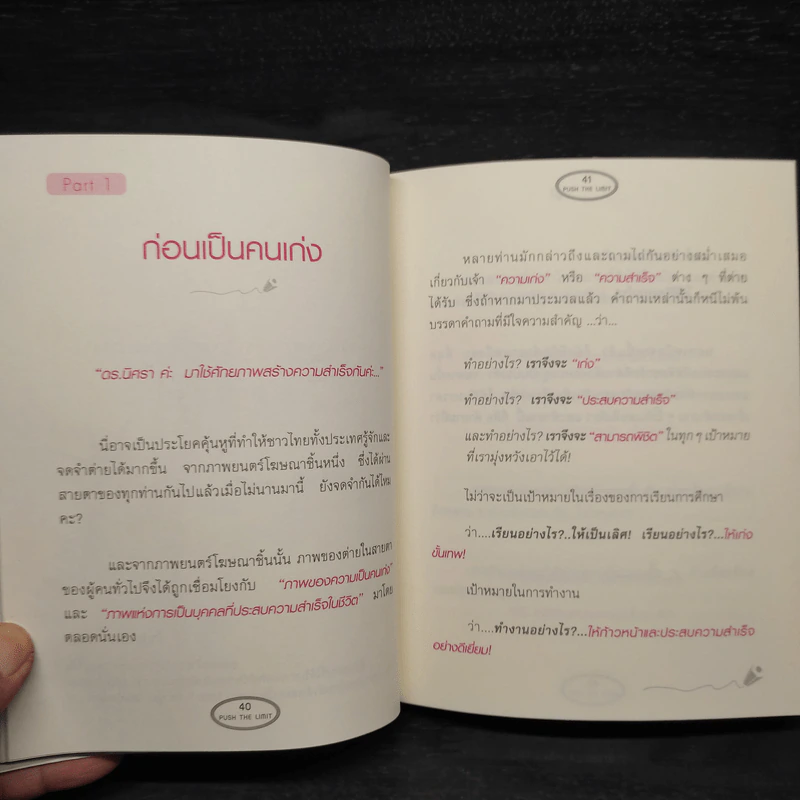 Part 1
ก่อนเป็นคนเก่ง
“ดร.นิศรา ค่ะ มาใช้ศักยภาพสร้างความสำเร็จกันค่ะ...”
นี่อาจเป็นประโยคคุ้นหูที่ทำให้ชาวไทยทั้งประเทศรู้จักและ
จดจำต่ายได้มากขึ้น จากภาพยนตร์โฆษณาชิ้นหนึ่ง ซึ่งได้ผ่าน
สายตาของทุกท่านกันไปแล้วเมื่อไม่นานมานี้ ยังจดจำกันได้ไหม
คะ?
และจากภาพยนตร์โฆษณาชิ้นนั้น ภาพของต่ายในสายตา
ของผู้คนทั่วไปจึงได้ถูกเชื่อมโยงกับ “ภาพของความเป็นคนเก่ง”
และ “ภาพแห่งการเป็นบุคคลที่ประสบความสำเร็จในชีวิต” มาโดย
ตลอดนั่นเอง
40
PUSH THE LIMIT
41
PUSH THE LIMIT
หลายท่านมักกล่าวถึงและถามไถ่กันอย่างสม่ำเสมอ
เกี่ยวกับเจ้า “ความเก่ง” หรือ “ความสำเร็จ” ต่าง ๆ ที่ต่าย
ได้รับ ซึ่งถ้าหากมาประมวลแล้ว คำถามเหล่านั้นก็หนีไม่พ้น
บรรดาคำถามที่มีใจความสำคัญ ...ว่า...
ทำอย่างไร? เราจึงจะ “เก่ง”
ทำอย่างไร? เราจึงจะ “ประสบความสำเร็จ”
และทำอย่างไร? เราจึงจะ “สามารถพิชิต” ในทุก ๆ เป้าหมาย
ที่เรามุ่งหวังเอาไว้ได้!
ไม่ว่าจะเป็นเป้าหมายในเรื่องของการเรียนการศึกษา
ว่า....เรียนอย่างไร?..ให้เป็นเลิศ! เรียนอย่างไร?...ให้เก่ง
ขั้นเทพ!
เป้าหมายในการทำงาน
ว่า....ทำงานอย่างไร?...ให้ก้าวหน้าและประสบความสำเร็จ
อย่างดีเยี่ยม!